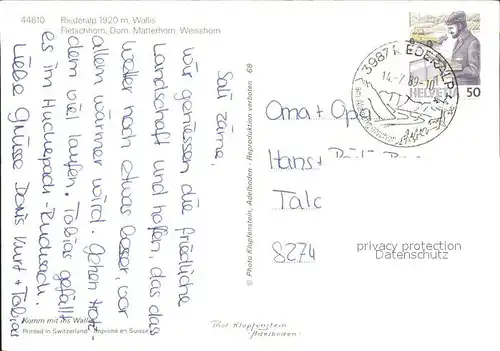 44610
Riederalp 1920 m, Wallis
Fletschhorn, Dom, Matterhorn, Weisshorn
Sali zäme,
wir geniessen die friedliche
Landschaft und hoffen, das das
Wetter noch etwas besser, vor
allem wärmer wird. Gehen trotz
dem viel laufen. Tobias gefällt
es im Huckepack-Rucksack.
Liebe Grüsse Doris Kurt + Tobias
Komm mit ins Wallis
Printed in Switzerland - Imprimé en Suisse
© Photo Klopfenstein, Adelboden - Reproduktion verboten 68
Photo Klopfenstein
Adelboden
3987 RIEDERALP
14.-7.89-10
HELVETIA
50
Oma + Opa
Hans +
Talc
8274
privacy protection
Datenschutz